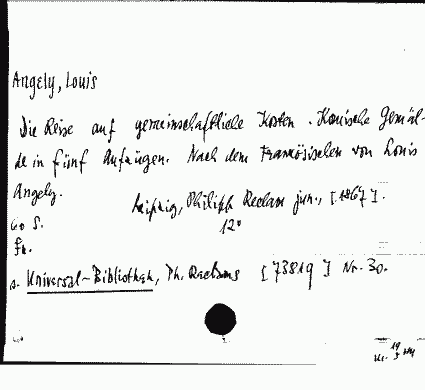 Angely, Louis
Die Reise auf gemeinschaftliche Kosten. Komische Gemäl-
de in fünf Aufzügen. Nach dem Französischen von Louis
Angely.
Leipzig, Philipp Reclam jun., [1867].
60 S. 12°
fh.
s. Universal-Bibliothek, Ph. Reclams [73819] Nr. 30.